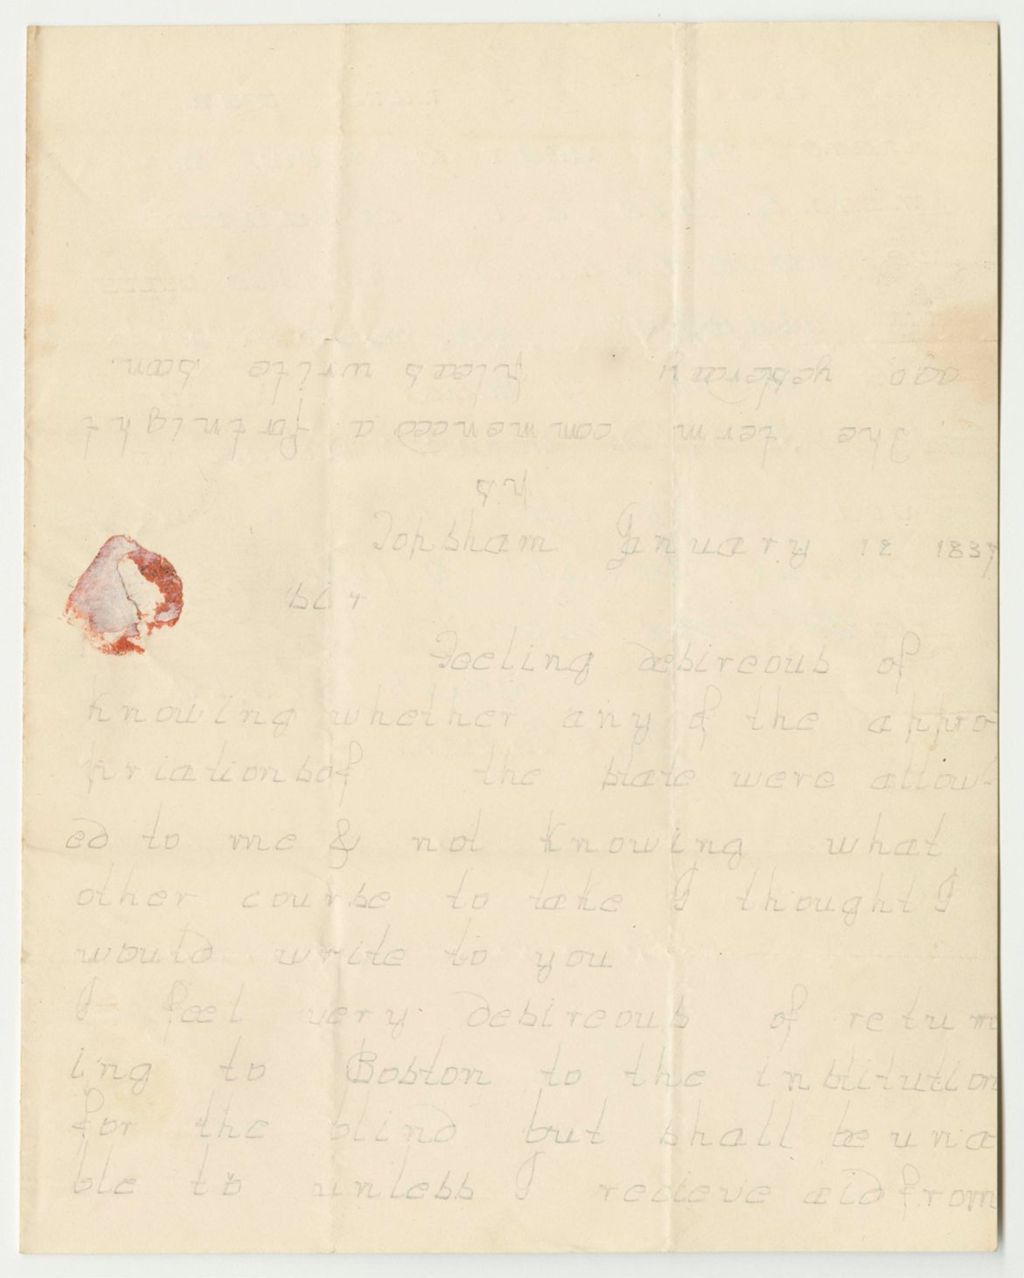 Topsham January 12 1837
Sir
Feeling desireous of
knowing whether any of the appro-
priationsof the state were allow-
ed to me & not knowing what
other course to take I thought I
would write to you
I feel very desireous of return
ing to Boston to the institution
for the blind but shall be una
ble to unless I recieve aid from
ps
The term commenced a fortnight
ago yesterday pleas write soon.